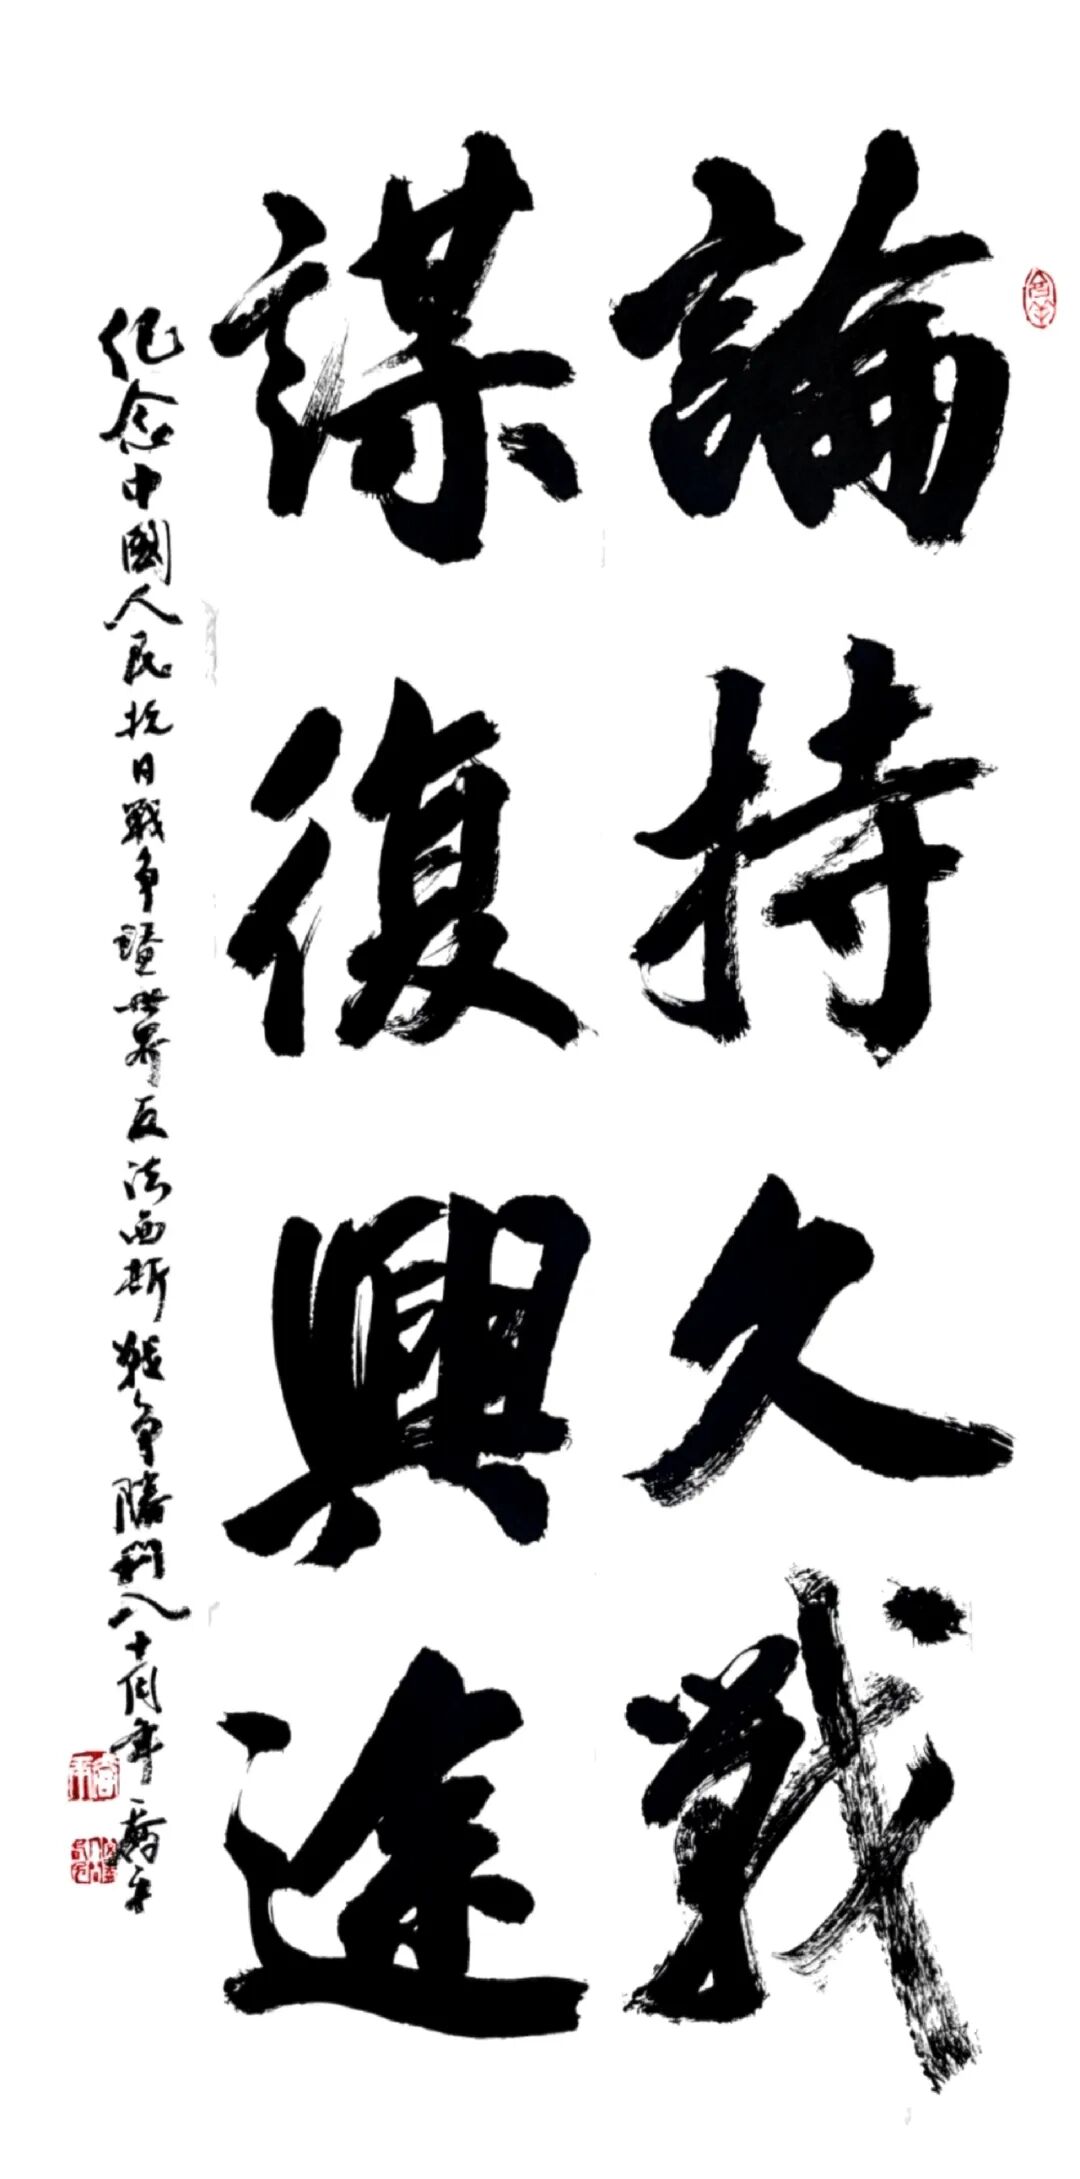 論持久戰
謀復興途
纪念中國人民抗日戰争暨世界反法西斯戰争勝利八十周年 喬平